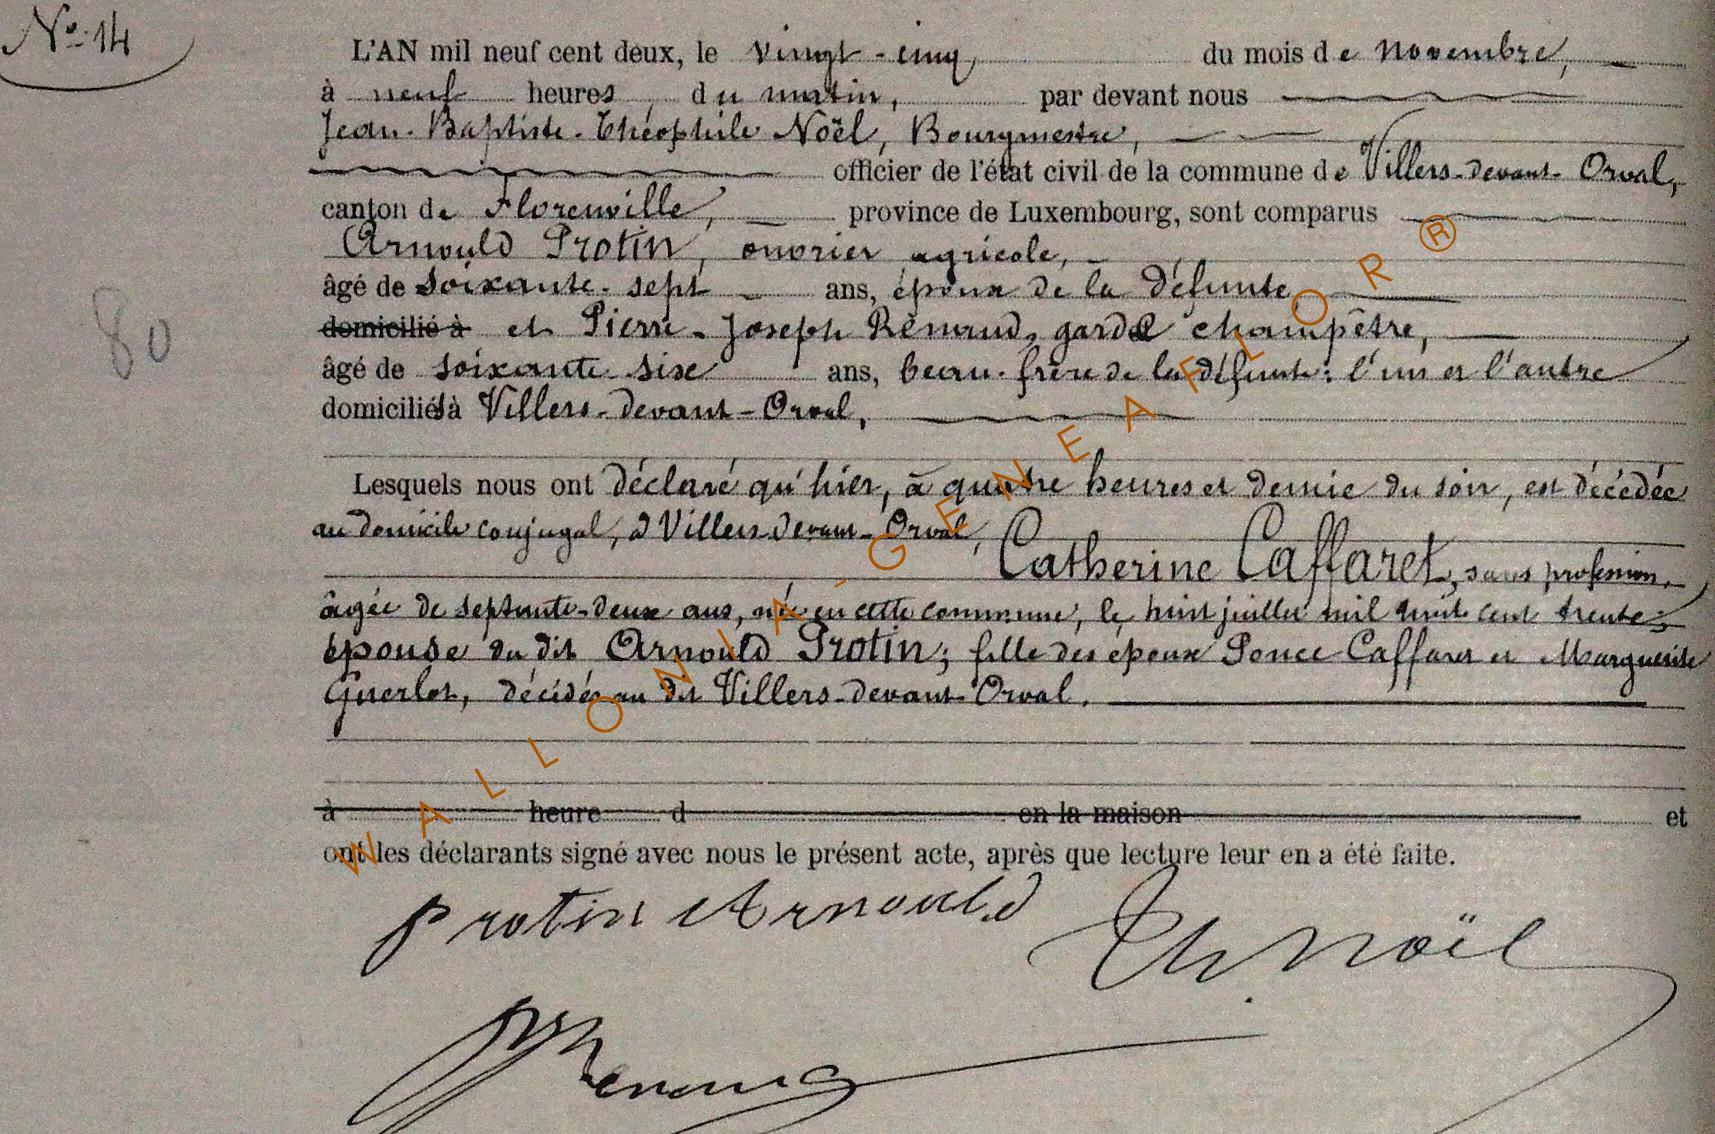 Nº 14
L'AN mil neuf cent deux, le vingt-cinq du mois de novembre,
à neuf heures, du matin, par devant nous
Jean-Baptiste-Théophile Noël, Bourgmestre,
officier de l'état civil de la commune de Villers-devant-Orval,
canton de Florenville, province de Luxembourg, sont comparus
Arnould Protin, ouvrier agricole,
âgé de soixante-sept ans, époux de la défunte
domicilié à et Pierre-Joseph Renaud, garde champêtre,
80
âgé de soixante-six ans, beau-frère de la défunte: l'un et l'autre
domiciliés à Villers-devant-Orval,
Lesquels nous ont déclaré qu'hier, à quatre heures et demie du soir, est décédée
au domicile conjugal, à Villers-devant-Orval,
Catherine Caffaret, sans profession,
âgée de septante-deux ans, née en cette commune, le huit juillet mil huit cent trente;
épouse du dit Arnould Protin; fille des époux Ponce Caffaret et Marguerite
Guerlot, décédés au dit Villers-devant-Orval.
à heure d en la maison et
ont les déclarants signé avec nous le présent acte, après que lecture leur en a été faite.
Protin Arnould
Th. Noël
Renaud
WALLONIA-GENEAFLOR®